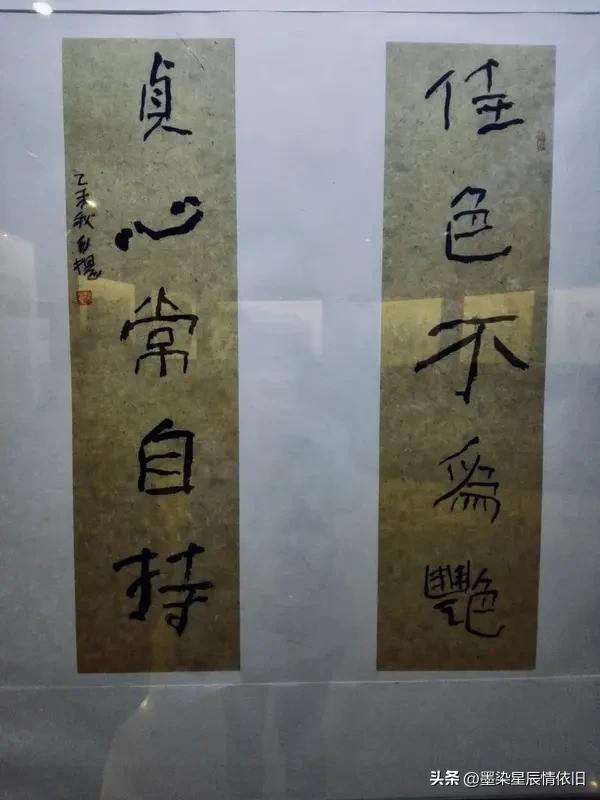 佳色不為艷
貞心常自持
乙未秋
头条 @墨染星辰情依旧